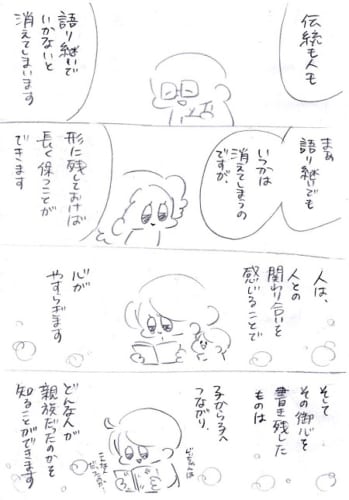 伝統も人も
語り継いで
いかないと
消えてしまいます
まぁ
語り継いでも
いつかは
消えてしまうの
ですが、
形に残しておけば
長く保つことが
できます
人は、
人との
関わり合いを
感じることで
心が
やすらぎます
そして
その御心を
書き残した
ものは
子から子へ
つながり、
どんな人が
親族だったのかを
知ることができます